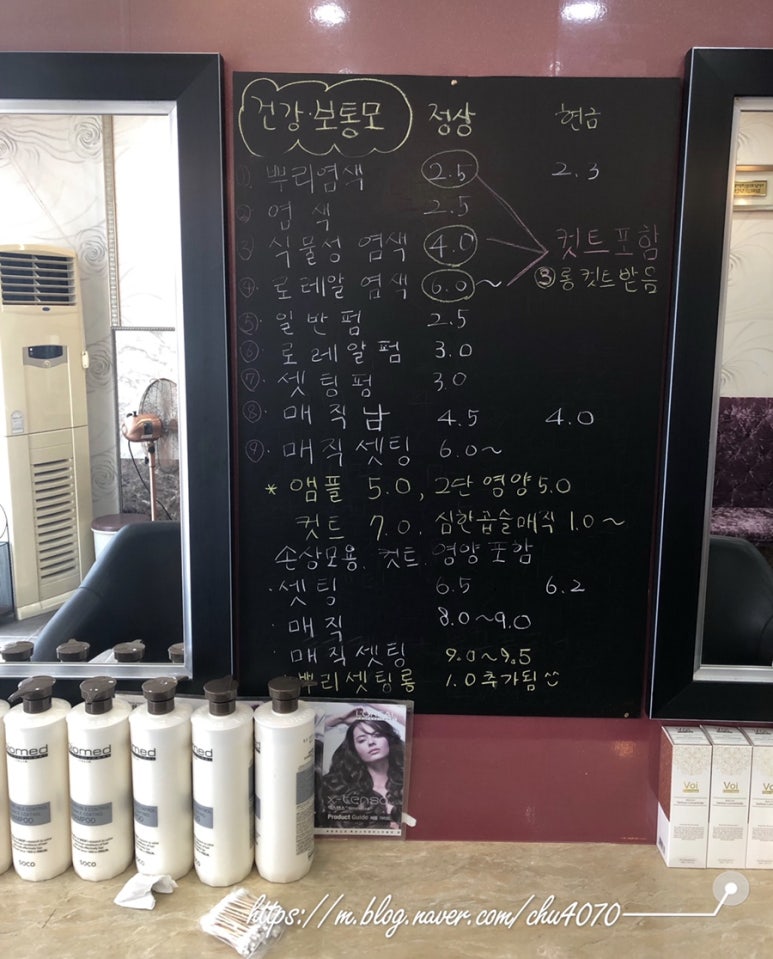 건강·보통모 정상 현금
① 뿌리염색 2.5 2.3
② 염색 2.5
③ 식물성 염색 4.0 컷트포함
④ 로레알 염색 6.0~ ③롱컷트받음
⑤ 일반펌 2.5
⑥ 로레알펌 3.0
⑦ 셋팅펌 3.0
⑧ 매직남 4.5 4.0
⑨ 매직셋팅 6.0~
* 앰플 5.0, 2단영양 5.0
컷트 7.0, 심한곱슬매직 1.0~
손상모용, 컷트, 영양포함
·셋팅 6.5 6.2
·매직 8.0~9.0
·매직셋팅 9.0~9.5
뿌리셋팅롱 1.0추가됨
SOCO
SOCO
SOCO
x-tenso
Product Guide
Voi
Voi
Voi
https://m.blog.naver.com/chu4070